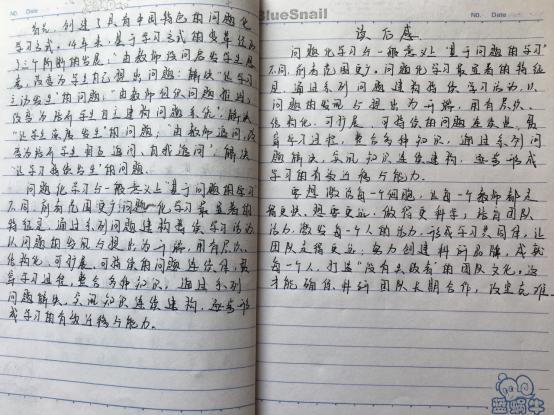 NO.
Date
首先, 创建了具有中国特色的问题化
学习方式。
三个阶段的发展: 由教师设问启发学生思
考, 改变为学生自己提出问题; 解决“让学习
主动发生”的问题; 由教师组织问题推进,
改变为让学生自主建构问题系统; 解决
“让学生深度发生”的问题; 由教师追问, 改
变为让学生相互追问, 自我追问, 解决
“让学习持续发生”的问题。
问题化学习与一般意义上“基于问题的学习”
不同, 前者范围更广, 问题化学习最显著的
特征是, 通过系列问题建构学习活动,
以问题的发现与提出为开端, 用有层次、
结构化、可扩展、可持续的问题连续体, 贯
穿学习过程, 整合各种知识, 通过系列
问题解决, 实现知识连续建构, 逐步形
成学习的有效迁移与能力。
BlueSnail
NO.
Date
读后感
问题化学习与一般意义上“基于问题的学习”
不同, 前者范围更广。问题化学习最显著的特征
是, 通过系列问题建构学习活动, 以
问题的发现与提出为开端, 用有层次、
结构化、可扩展、可持续的问题连续体, 贯
穿学习过程, 整合各种知识, 通过系列问
题解决, 实现知识连续建构, 逐步形成
学习的有效迁移与能力。
要想激活每一个细胞, 让每一个教师都走
得更快, 想要更远, 做得更科学, 培育团队
活力, 激发每一个人的活力, 形成学习共同体, 让
团队走得更远; 努力创建科研品牌, 成就
每一个人, 打造“没有失败者”的团队文化, 这
才能确保科研团队长期合作, 攻坚克难。
蓝蜗牛